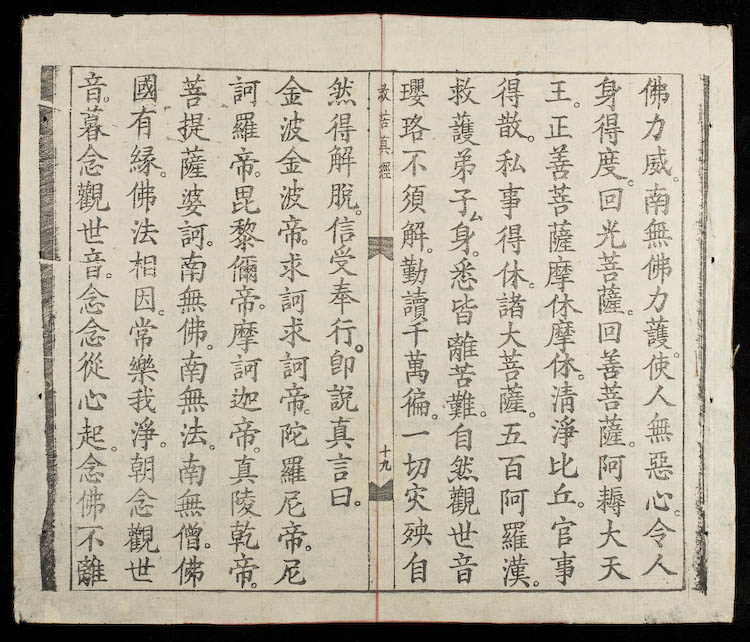 佛力威。南無佛力護。使人無惡心。令人
身得度。回光菩薩。回善菩薩。阿耨大天
王。正善菩薩摩休摩休。清淨比丘。官事
得散。私事得休。諸大菩薩。五百阿羅漢。
救護弟子ム身。悉皆離苦難。自然觀世音
瓔珞不須解。勤讀千萬徧。一切灾殃自
救苦真經
十九
然得解脫。信受奉行。卽說真言曰。
金波金波帝。求訶求訶帝。陀羅尼帝。尼
訶羅帝。毘黎儞帝。摩訶迦帝。真陵乾帝。
菩提薩婆訶。南無佛。南無法。南無僧。佛
國有緣。佛法相因。常樂我淨。朝念觀世
音。暮念觀世音。念念從心起。念佛不離